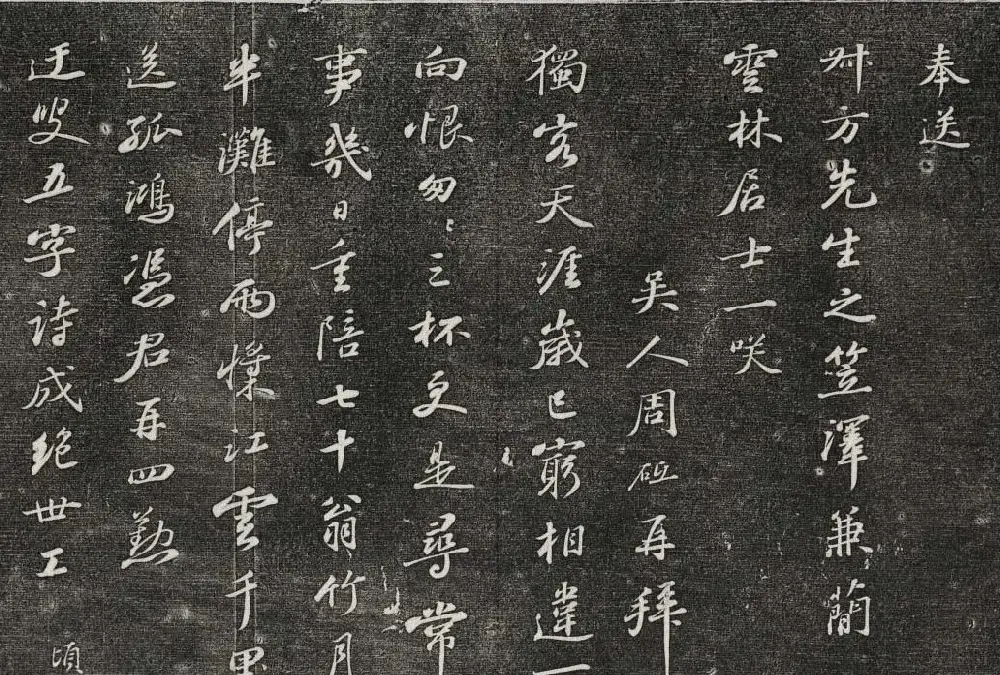 奉送
叔方先生之笠澤兼蕳
雲林居士一咲
吳人周砥再拜
獨客天涯歲已窮相違一
向恨匆〻三杯更是尋常
事幾日重陪七十翁竹月
半灘停兩槳江雲千里
送孤鴻憑君再四懃
迂叟五字詩成絕世工 頃